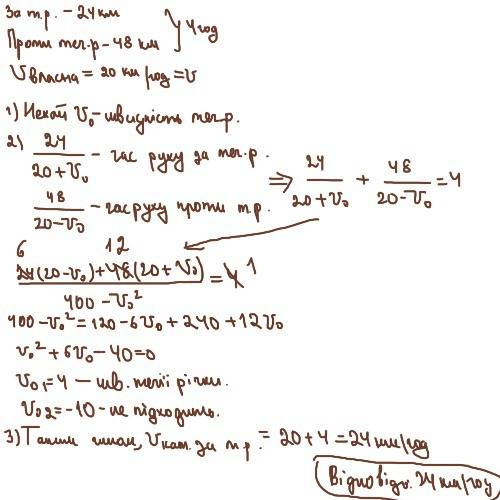 За т.р. - 24 км
Проти теч.р - 48 км } 4 год
Vвласна = 20 км/год = V
1) Нехай V₀ - швидкість теч.р.
2) 24/(20+V₀) - час руху за теч.р.
48/(20-V₀) - час руху проти т.р.
⇒ 24/(20+V₀) + 48/(20-V₀) = 4
6 12
(24(20-V₀)+48(20+V₀))/(400-V₀²) = 4 1
400-V₀² = 120-6V₀+240+12V₀
V₀²+6V₀-40=0
V₀₁=4 - шв. течії річки.
V₀₂=-10 - не підходить.
3) Таким чином, Vкат. за т.р. = 20+4=24 км/год
Відповідь. 24 км/год